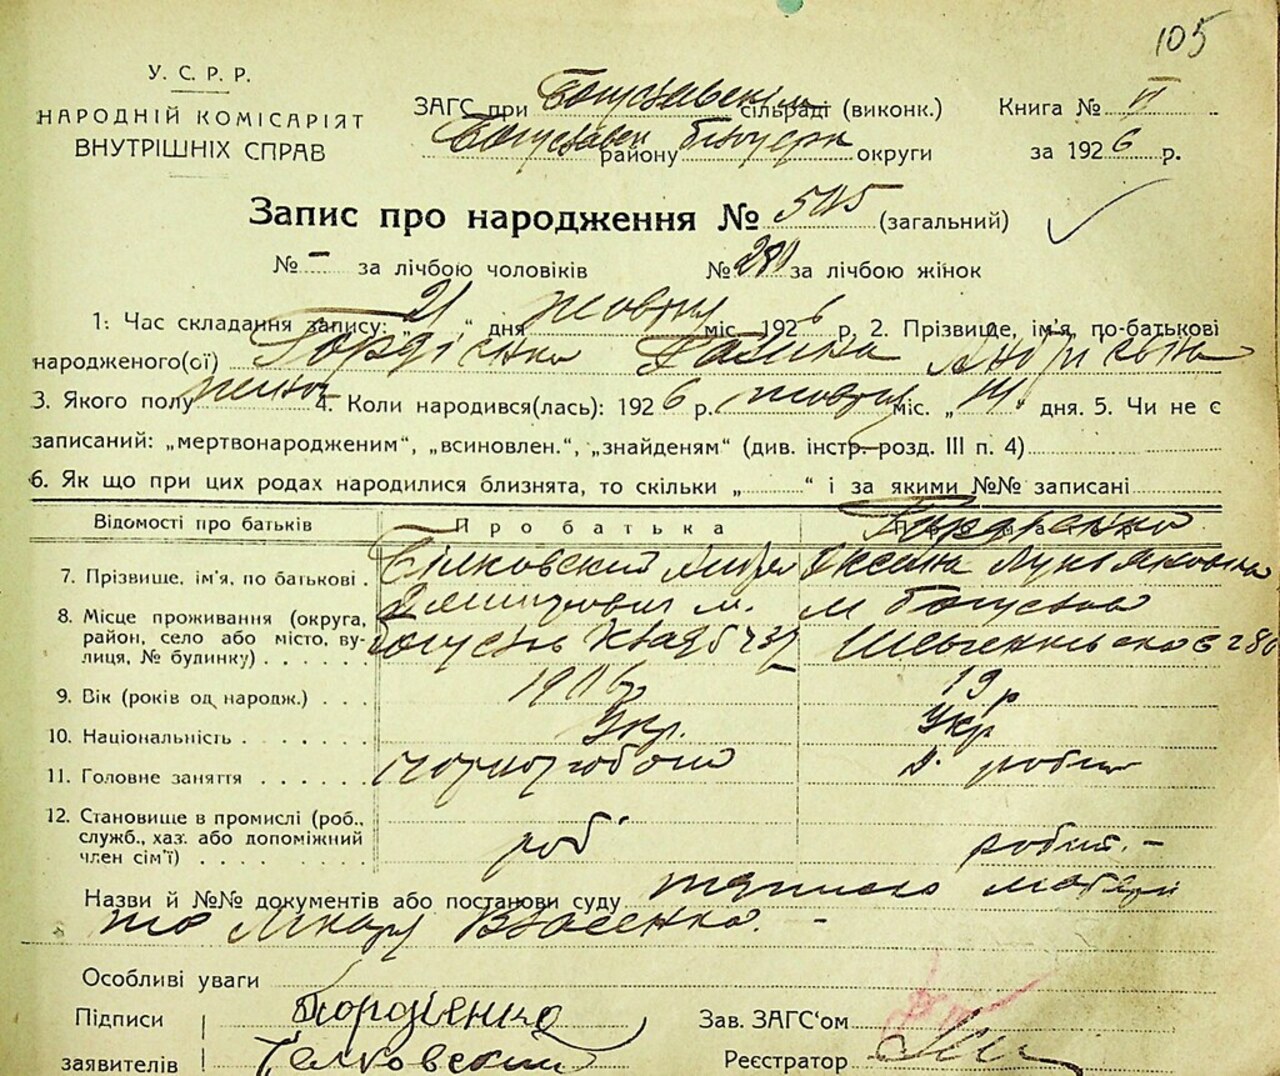 105
У. С. Р. Р.
НАРОДНІЙ КОМІСАРІЯТ
ВНУТРІШНІХ СПРАВ
ЗАГС при Богуславскім сільраді (виконк.)
Богуславск району білоцерк округи
Книга № VI
за 1926 р.
Запис про народження № 505 (загальний)
№ - за лічбою чоловіків № 280 за лічбою жінок
1. Час складання запису: „21“ дня жовтня міс. 1926 р. 2. Прізвище, ім'я, по-батькові
народженого(ої) Гордієнко Галина Андріевна
3. Якого полу жіноч 4. Коли народився(лась): 1926 р. жовтня міс. „14“ дня. 5. Чи не є
записаний: „мертвонародженим“, „всиновлен.“, „знайденям“ (див. інстр. розд. III п. 4)
6. Як що при цих родах народилися близнята, то скільки „ “ і за якими №№ записані
Відомості про батьків Про батька Про матір Гордієнко
7. Прізвище, ім'я, по батькові Андрей Оксана Лукьяновна
8. Місце проживання (округа, район, село або місто, вулиця, № будинку) м. Богуслав м Богуслав Шевченківська 280
9. Вік (років од народж.) 1906 19 р
10. Національність Укр. Укр
11. Головне заняття чорноробоч
12. Становище в промислі (роб., служб., хаз. або допоміжний член сім'ї) роб. робит. -
Назви й №№ документів або постанови суду матери
Власенко. -
Особливі уваги
Підписи Гордіенко Зав. ЗАГС'ом
заявителів Реєстратор